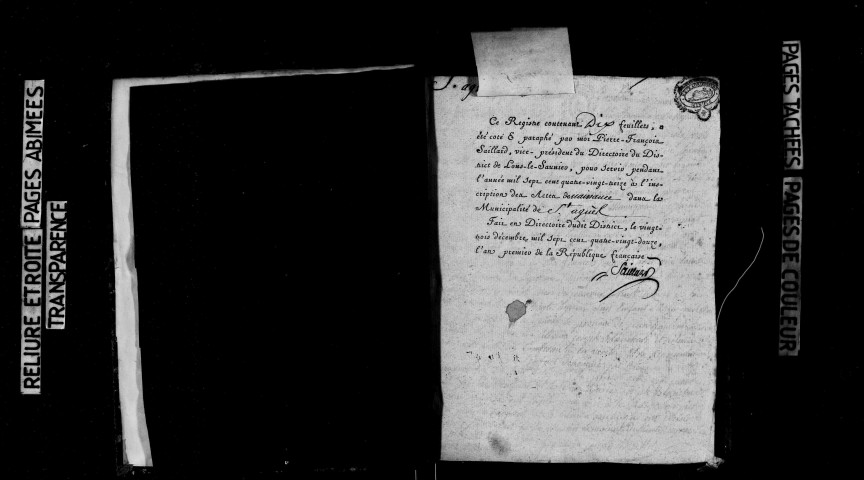 RELIURE ETROITE PAGES ABIMEES
TRANSPARENCE
Ce Registre contenant Dix feuillets, a
été coté & paraphé par moi Pierre-François
Saillard, vice-président du Directoire du Dis-
trict de Lons-le-Saunier, pour servir pendant
l'année mil sept cent quatre-vingt-treize à l'ins-
cription des Actes de naissance dans la
Municipalité de St agniel
Fait en Directoire dudit District, le vingt-
trois décembre mil sept cent quatre-vingt-douze,
l'an premier de la République française
Saillard
PAGES TACHÉES PAGES DE COULEUR